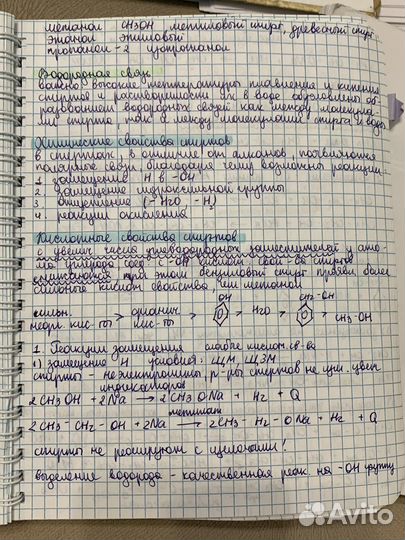 метанол CH3OH метиловый спирт, древесный спирт
этанол этиловый
пропанол-2 изопропанол
Водородная связь
важно: высокие температуры плавления и кипения
спиртов и растворимость их в воде обусловлены об
разованием водородных связей как между молекула
ми спирта, так и между молекулами спирта и воды
Химические свойства спиртов
в спиртах, в отличие от алканов, появляются
полярные связи, благодаря чему возможны реакции:
1. замещение H в -OH
2. замещение гидроксильной группы
3. отщепление (-H2O, -H)
4. реакции окисления
Кислотные свойства спиртов
с увелич. числа углеводородных заместителей у ато
ма углерода соед. с -OH кислотн. свой-ва спиртов
при этом бензиловый спирт прояви. более
сильные кислотн. свойства, чем метанол
сильн. неорг. кис-ты > органич. кис-ты > OH > H2O > CH2-OH > CH3-OH
1. Реакции замещения слабые кислотн. св-ва
1) замещение H условия: ЩМ, ЩЗМ
спирты - неэлектролиты, р-ры спиртов не изм. цвет
индикаторов
2CH3OH + 2Na → 2CH3ONa + H2 + Q
метилат
2CH3-CH2-OH + 2Na → 2CH3-H2-ONa + H2 + Q
спирты не реагируют с щелочами!
выделение водорода - качественная реак. на -OH группу
Avito